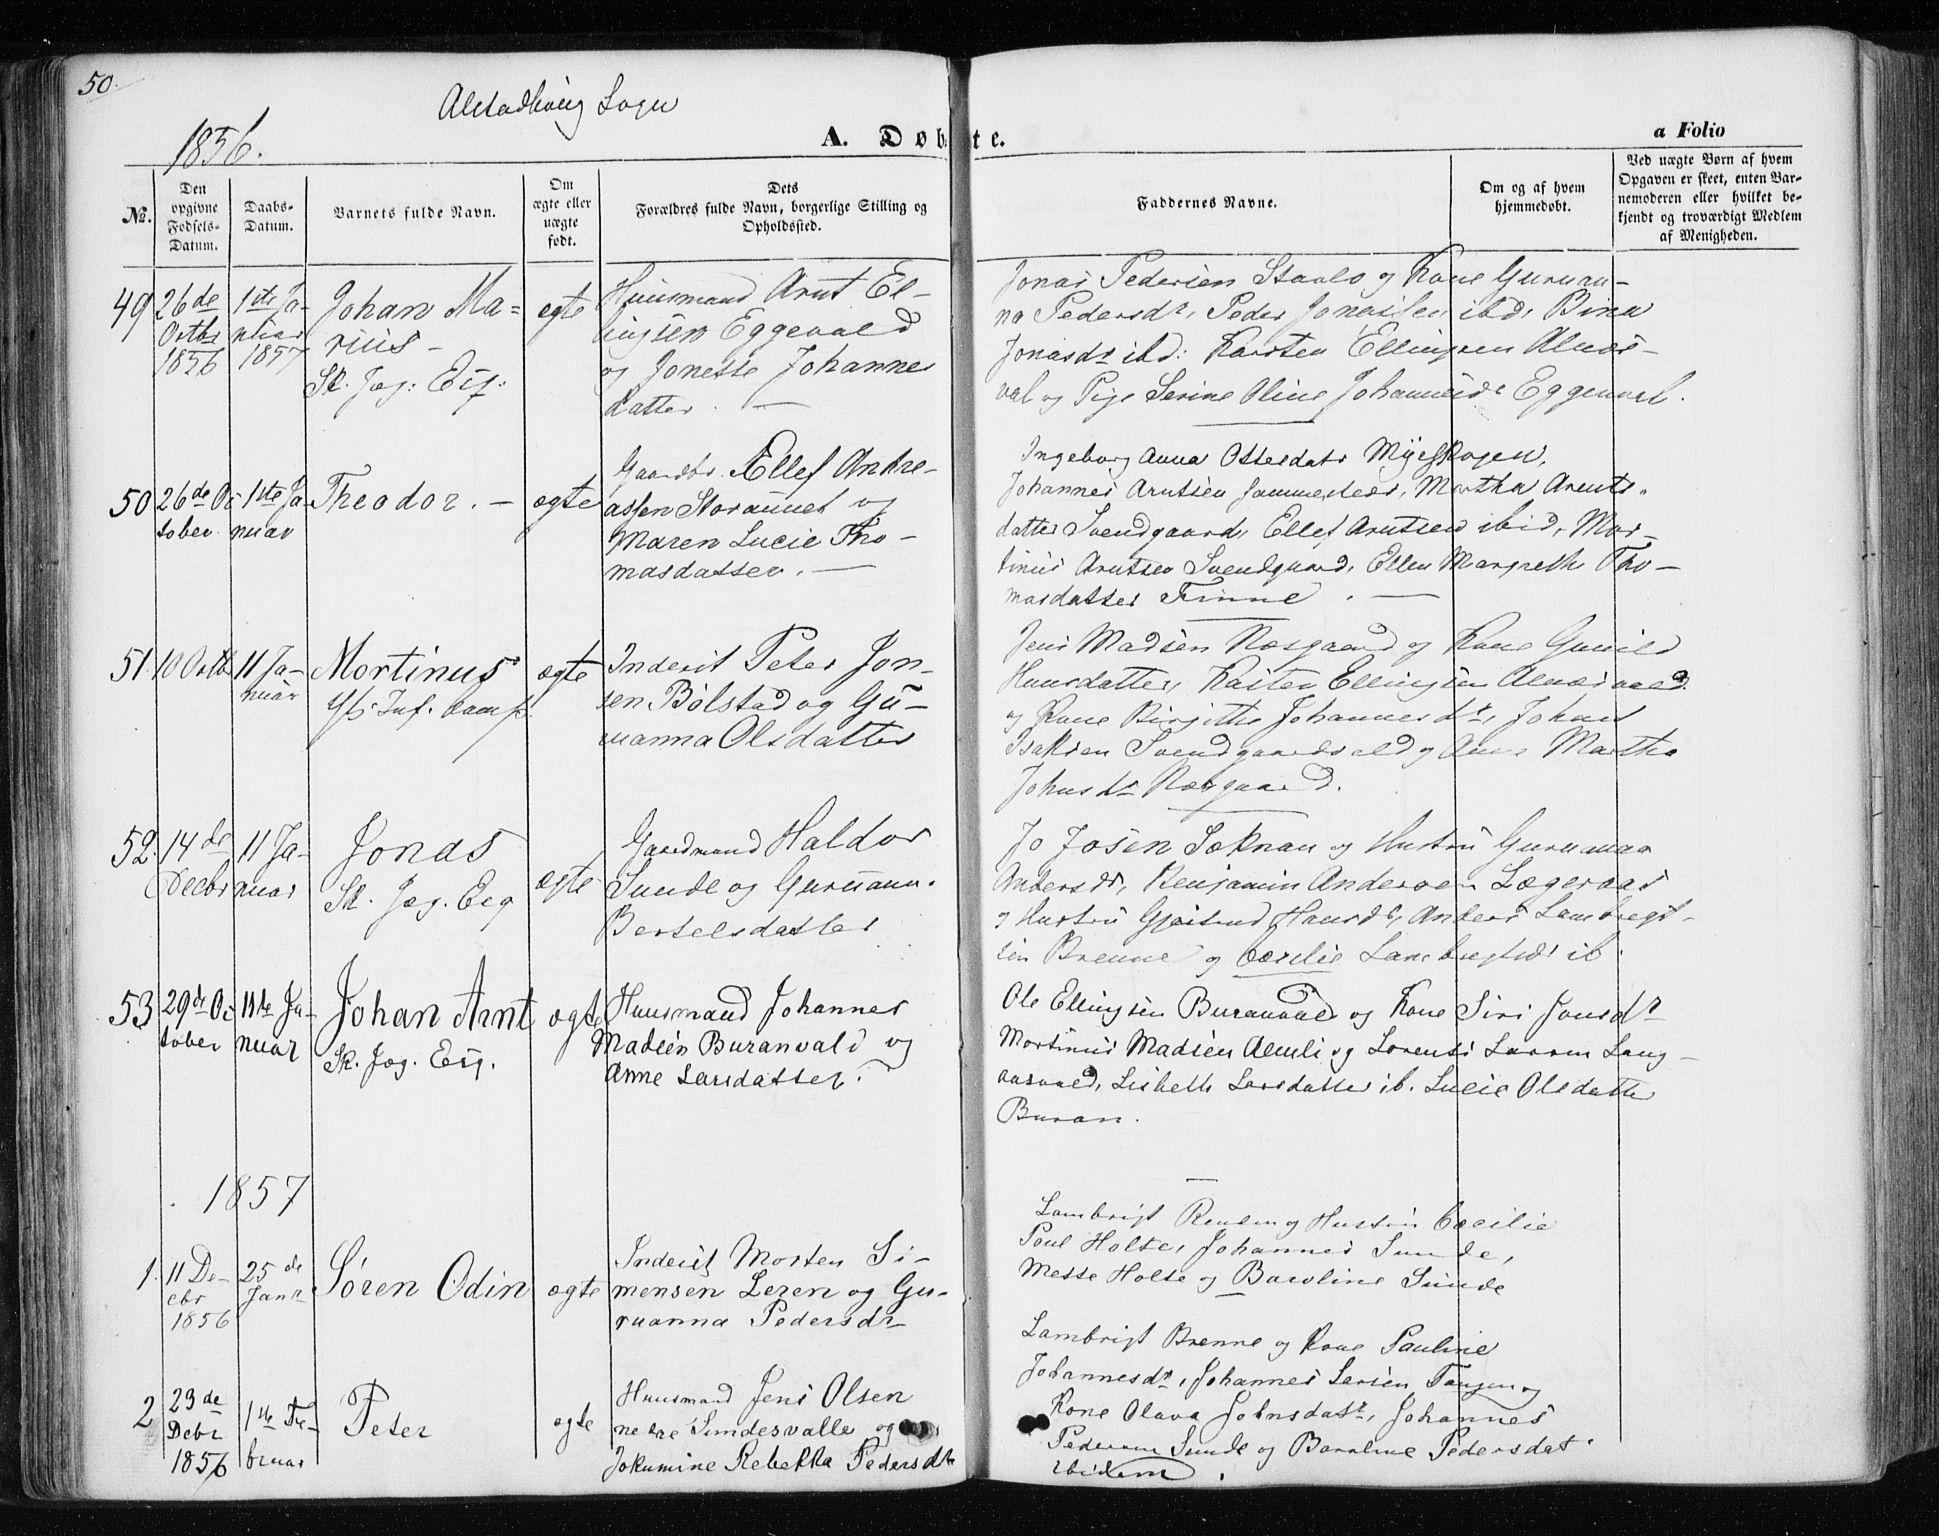 50.
Alstadhoug Sogn
1856.
A. Døbte.
a Folio
№.
Den opgivne Fødsels-Datum.
Daabs-Datum.
Barnets fulde Navn.
Om ægte eller uægte født.
Dets Forældres fulde Navn, borgerlige Stilling og Opholdssted.
Faddernes Navne.
Om og af hvem hjemmedøbt.
Ved uægte Børn af hvem Opgaven er skeet, enten Barnemoderen eller hvilket bekjendt og troværdigt Medlem af Menigheden.
49
26de Octbr 1856
1ste Januar 1857
Johan Ma=
rius -
Sk. Jæg:
egte
Huusmand Arnt El-
lingsen Eggevald
og Jonette Johannes
datter. —
Jonas Pedersen og Kone Guruan-
na Pedersdr, Peder Jonassen ibd, Bina
Jonasdr ibd: Karsten Ellingsen Alnæs-
val og Pige Serine Oline Johannesdr Eggenval.
50
26de October
1ste Januar
Theodor. —
ægte
Gaardbr. Ellef Andre-
assen Storaunet og
Maren Lucie Tho-
masdatter. —
Ingeborg Anna Ottersdatr
Johannes Arntsen, Martha Arnts-
datter Svendgaard, Ellef Arntsen ibid, Mor-
tinus Arntsen Svendgaard, Ellen Margrethe Tho-
masdatter Finne. —
51.
10 Octbr
11 Januar
Mortinus
Inf. Comp.
ægte
Inderst Peter Jon-
sen Bølstad og Gu-
ruanna Olsdatter
Jens Madsen Næsgaard og Kone Gunild
Hansdatter, Karsten Ellingsen Alnæsvald
og Kone Birgitte Johannesdr, Johan
Isaksen Svendgaardsvald og Anne Martha
Johnsdr Næsgaard.
52.
14de Decbr
11 Januar
Jonas
Sk. Jæg.
ægte
Gaardmand Haldor
Sunde og Guruanna
Bertelsdatter
Jo Josen Saknau og Hustru Guruanna
Andersdr, Benjamin Andersen
og Hustru Gjertrud Hansdr, Anders Lambregt-
sen Brenne og Cecilie Lambregtsdr ib.
53
29de October
11te Januar
Johan Arnt
Sk. Jæg.
ægte
Huusmand Johannes
Madsen Buranvald og
Anne Larsdatter.
Ole Ellingsen Buranvald og Kone Siri Jonsdr
Mortinus Madsen Almli og Lorents Larsen Lang-
aasvald, Lisbeth Larsdatter ib. Lucie Olsdatter
Buran.
1857
1.
11 Decbr 1856
25de Janr
Søren Odin
ægte
Inderst Morten Si-
mensen Leren og Gu-
ruanna Pedersdr
Lambrigt Reinlen og Hustru Cæcilie
Poul Holte, Johannes Sunde,
Mette Holte og Baroline Sunde
2
23de Debr 1856
1ste Februar
Peter
ægte
Huusmand Jens Olsen
nedre Sundesvalle og
Jokumine Rebekka Pedersdr
Lambrigt Brenne og Kone Pauline
Johannesdr, Johannes Larsen Tangen og
Kone Olava Johnsdatr, Johannes
Pedersen Sunde og Baroline Pedersdat.
ibidem.